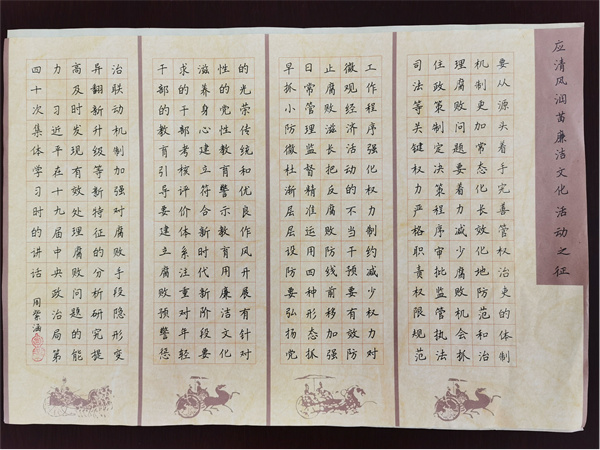 应清风润苗廉洁文化活动之征
要从源头着手完善管权治吏的体制
机制更加常态化长效化地防范和治
理腐败问题要着力减少腐败机会抓
住政策制定决策程序审批监管执法
司法等关键权力严格职责权限规范
工作程序强化权力制约减少权力对
微观经济活动的不当干预要有效防
止腐败滋长把反腐败防线前移加强
日常管理监督精准运用四种形态抓
早抓小防微杜渐层层设防要弘扬党
的光荣传统和优良作风开展有针对
性的党性教育警示教育用廉洁文化
滋养身心建立符合新时代新阶段要
求的干部考核评价体系注重对年轻
干部的教育引导要建立腐败预警惩
治联动机制加强对腐败手段隐形变
异翻新升级等新特征的分析研究提
高及时发现有效处理腐败问题的能
力 习近平在十九届中央政治局第
四十次集体学习时的讲话
周紫涵